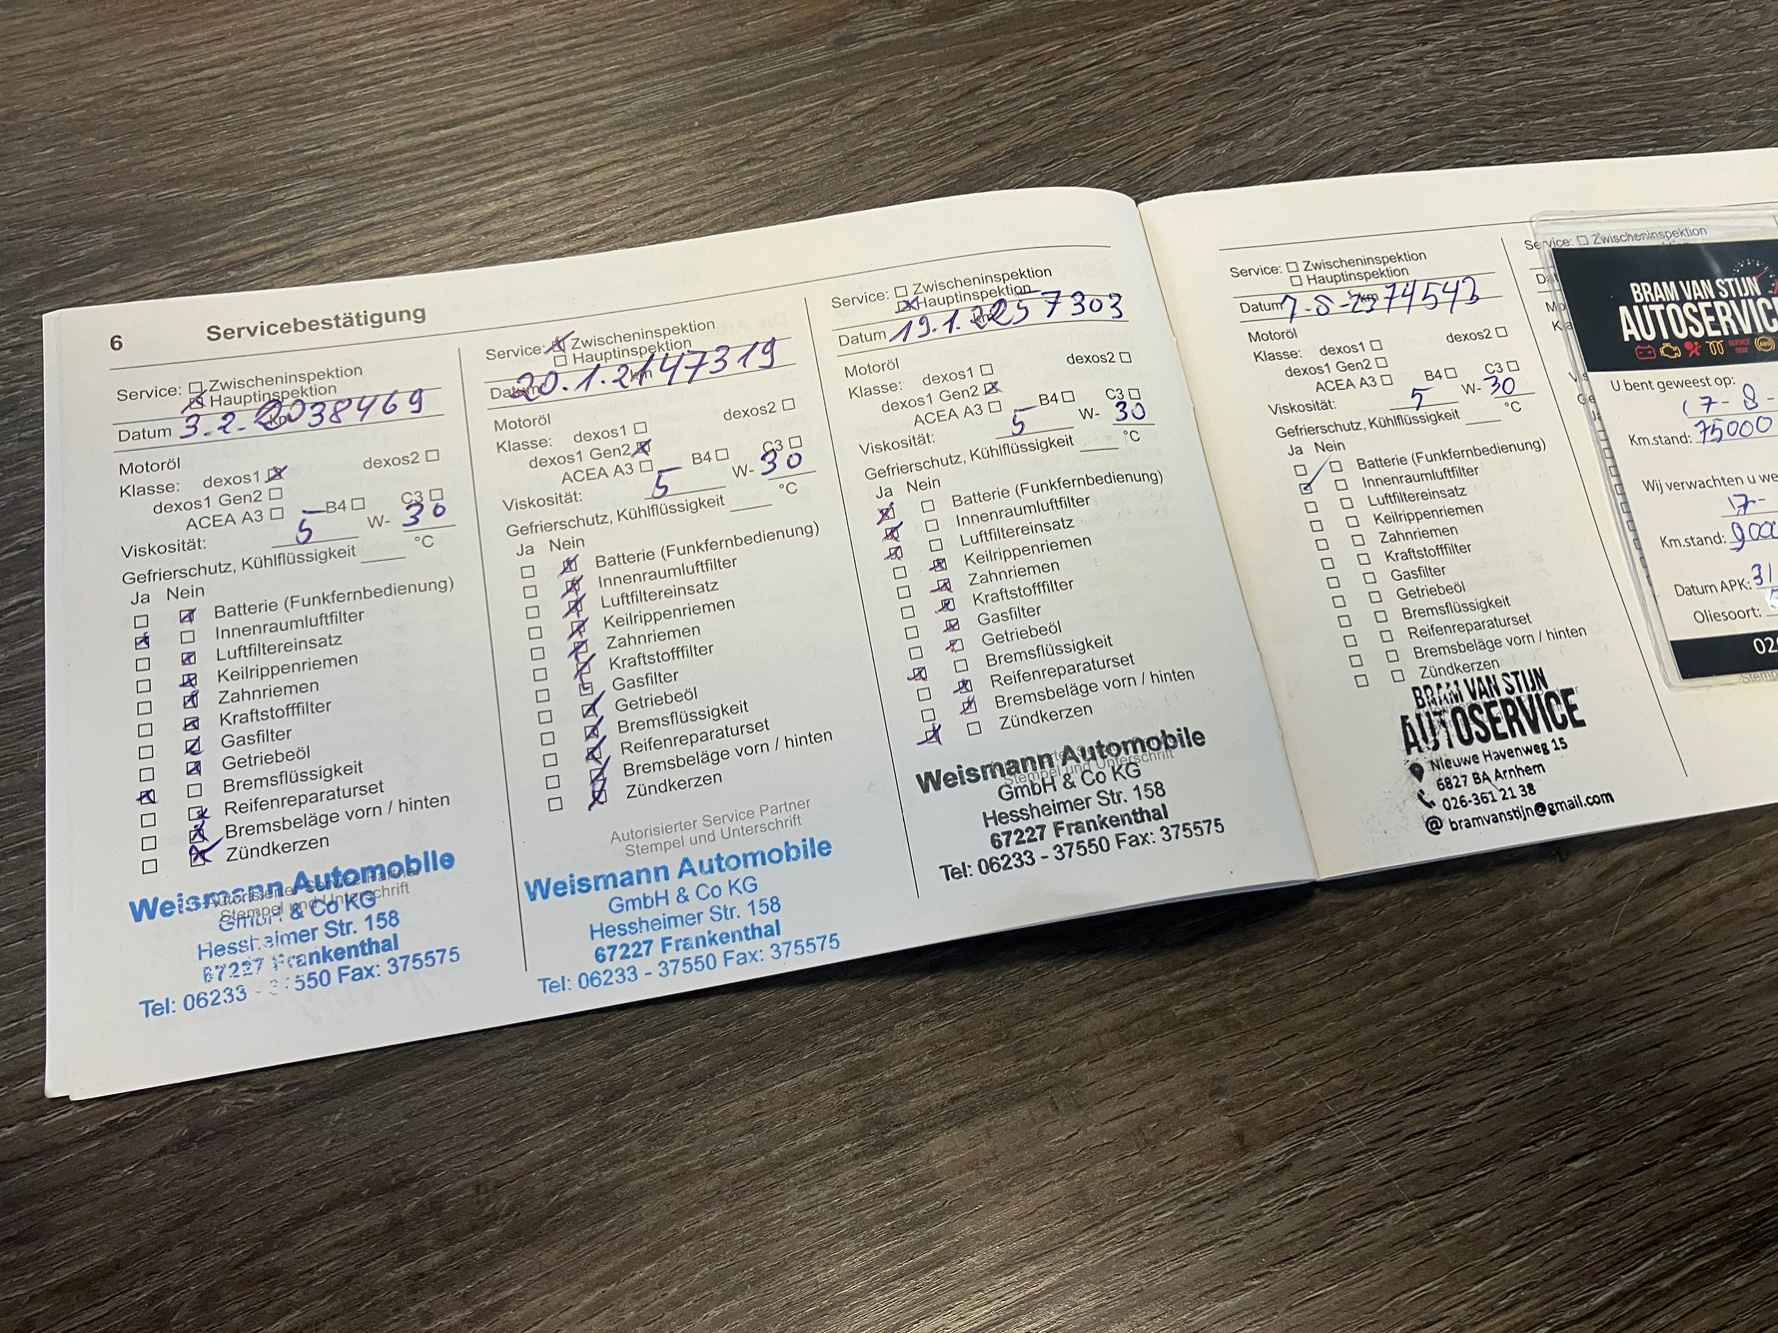 6 Servicebestätigung
Service: Zwischeninspektion
Hauptinspektion
Datum 3.2.20 km 38469
Motoröl
Klasse: dexos1 dexos2
dexos1 Gen2
ACEA A3 B4 C3
Viskosität: 5 W- 30
Gefrierschutz, Kühlflüssigkeit °C
Ja Nein
Batterie (Funkfernbedienung)
Innenraumluftfilter
Luftfiltereinsatz
Keilrippenriemen
Zahnriemen
Kraftstofffilter
Gasfilter
Getriebeöl
Bremsflüssigkeit
Reifenreparaturset
Bremsbeläge vorn / hinten
Zündkerzen
Autorisierter Service Partner
Stempel und Unterschrift
Weismann Automobile
GmbH & Co KG
Hessheimer Str. 158
67227 Frankenthal
Tel: 06233 - 37550 Fax: 375575
Service: Zwischeninspektion
Hauptinspektion
Datum 20.1.21 km 47319
Motoröl
Klasse: dexos1 dexos2
dexos1 Gen2
ACEA A3 B4 C3
Viskosität: 5 W- 30
Gefrierschutz, Kühlflüssigkeit °C
Ja Nein
Batterie (Funkfernbedienung)
Innenraumluftfilter
Luftfiltereinsatz
Keilrippenriemen
Zahnriemen
Kraftstofffilter
Gasfilter
Getriebeöl
Bremsflüssigkeit
Reifenreparaturset
Bremsbeläge vorn / hinten
Zündkerzen
Autorisierter Service Partner
Stempel und Unterschrift
Weismann Automobile
GmbH & Co KG
Hessheimer Str. 158
67227 Frankenthal
Tel: 06233 - 37550 Fax: 375575
Service: Zwischeninspektion
Hauptinspektion
Datum 19.1.22 km 57303
Motoröl
Klasse: dexos1 dexos2
dexos1 Gen2
ACEA A3 B4 C3
Viskosität: 5 W- 30
Gefrierschutz, Kühlflüssigkeit °C
Ja Nein
Batterie (Funkfernbedienung)
Innenraumluftfilter
Luftfiltereinsatz
Keilrippenriemen
Zahnriemen
Kraftstofffilter
Gasfilter
Getriebeöl
Bremsflüssigkeit
Reifenreparaturset
Bremsbeläge vorn / hinten
Zündkerzen
Stempel und Unterschrift
Weismann Automobile
GmbH & Co KG
Hessheimer Str. 158
67227 Frankenthal
Tel: 06233 - 37550 Fax: 375575
Service: Zwischeninspektion
Hauptinspektion
Datum km 74543
Motoröl
Klasse: dexos1 dexos2
dexos1 Gen2
ACEA A3 B4 C3
Viskosität: 5 W- 30
Gefrierschutz, Kühlflüssigkeit °C
Ja Nein
Batterie (Funkfernbedienung)
Innenraumluftfilter
Luftfiltereinsatz
Keilrippenriemen
Zahnriemen
Kraftstofffilter
Gasfilter
Getriebeöl
Bremsflüssigkeit
Reifenreparaturset
Bremsbeläge vorn / hinten
Zündkerzen
BRAM VAN STIJN
AUTOSERVICE
Nieuwe Havenweg 15
6827 BA Arnhem
026-361 21 38
@ bramvanstijn@gmail.com
Service: Zwischeninspektion
BRAM VAN STIJN
AUTOSERVIC
U bent geweest op:
17-8-
Km.stand: 75000
Wij verwachten u we
17-
Km.stand: 9000
Datum APK: 31
Oliesoort:
02